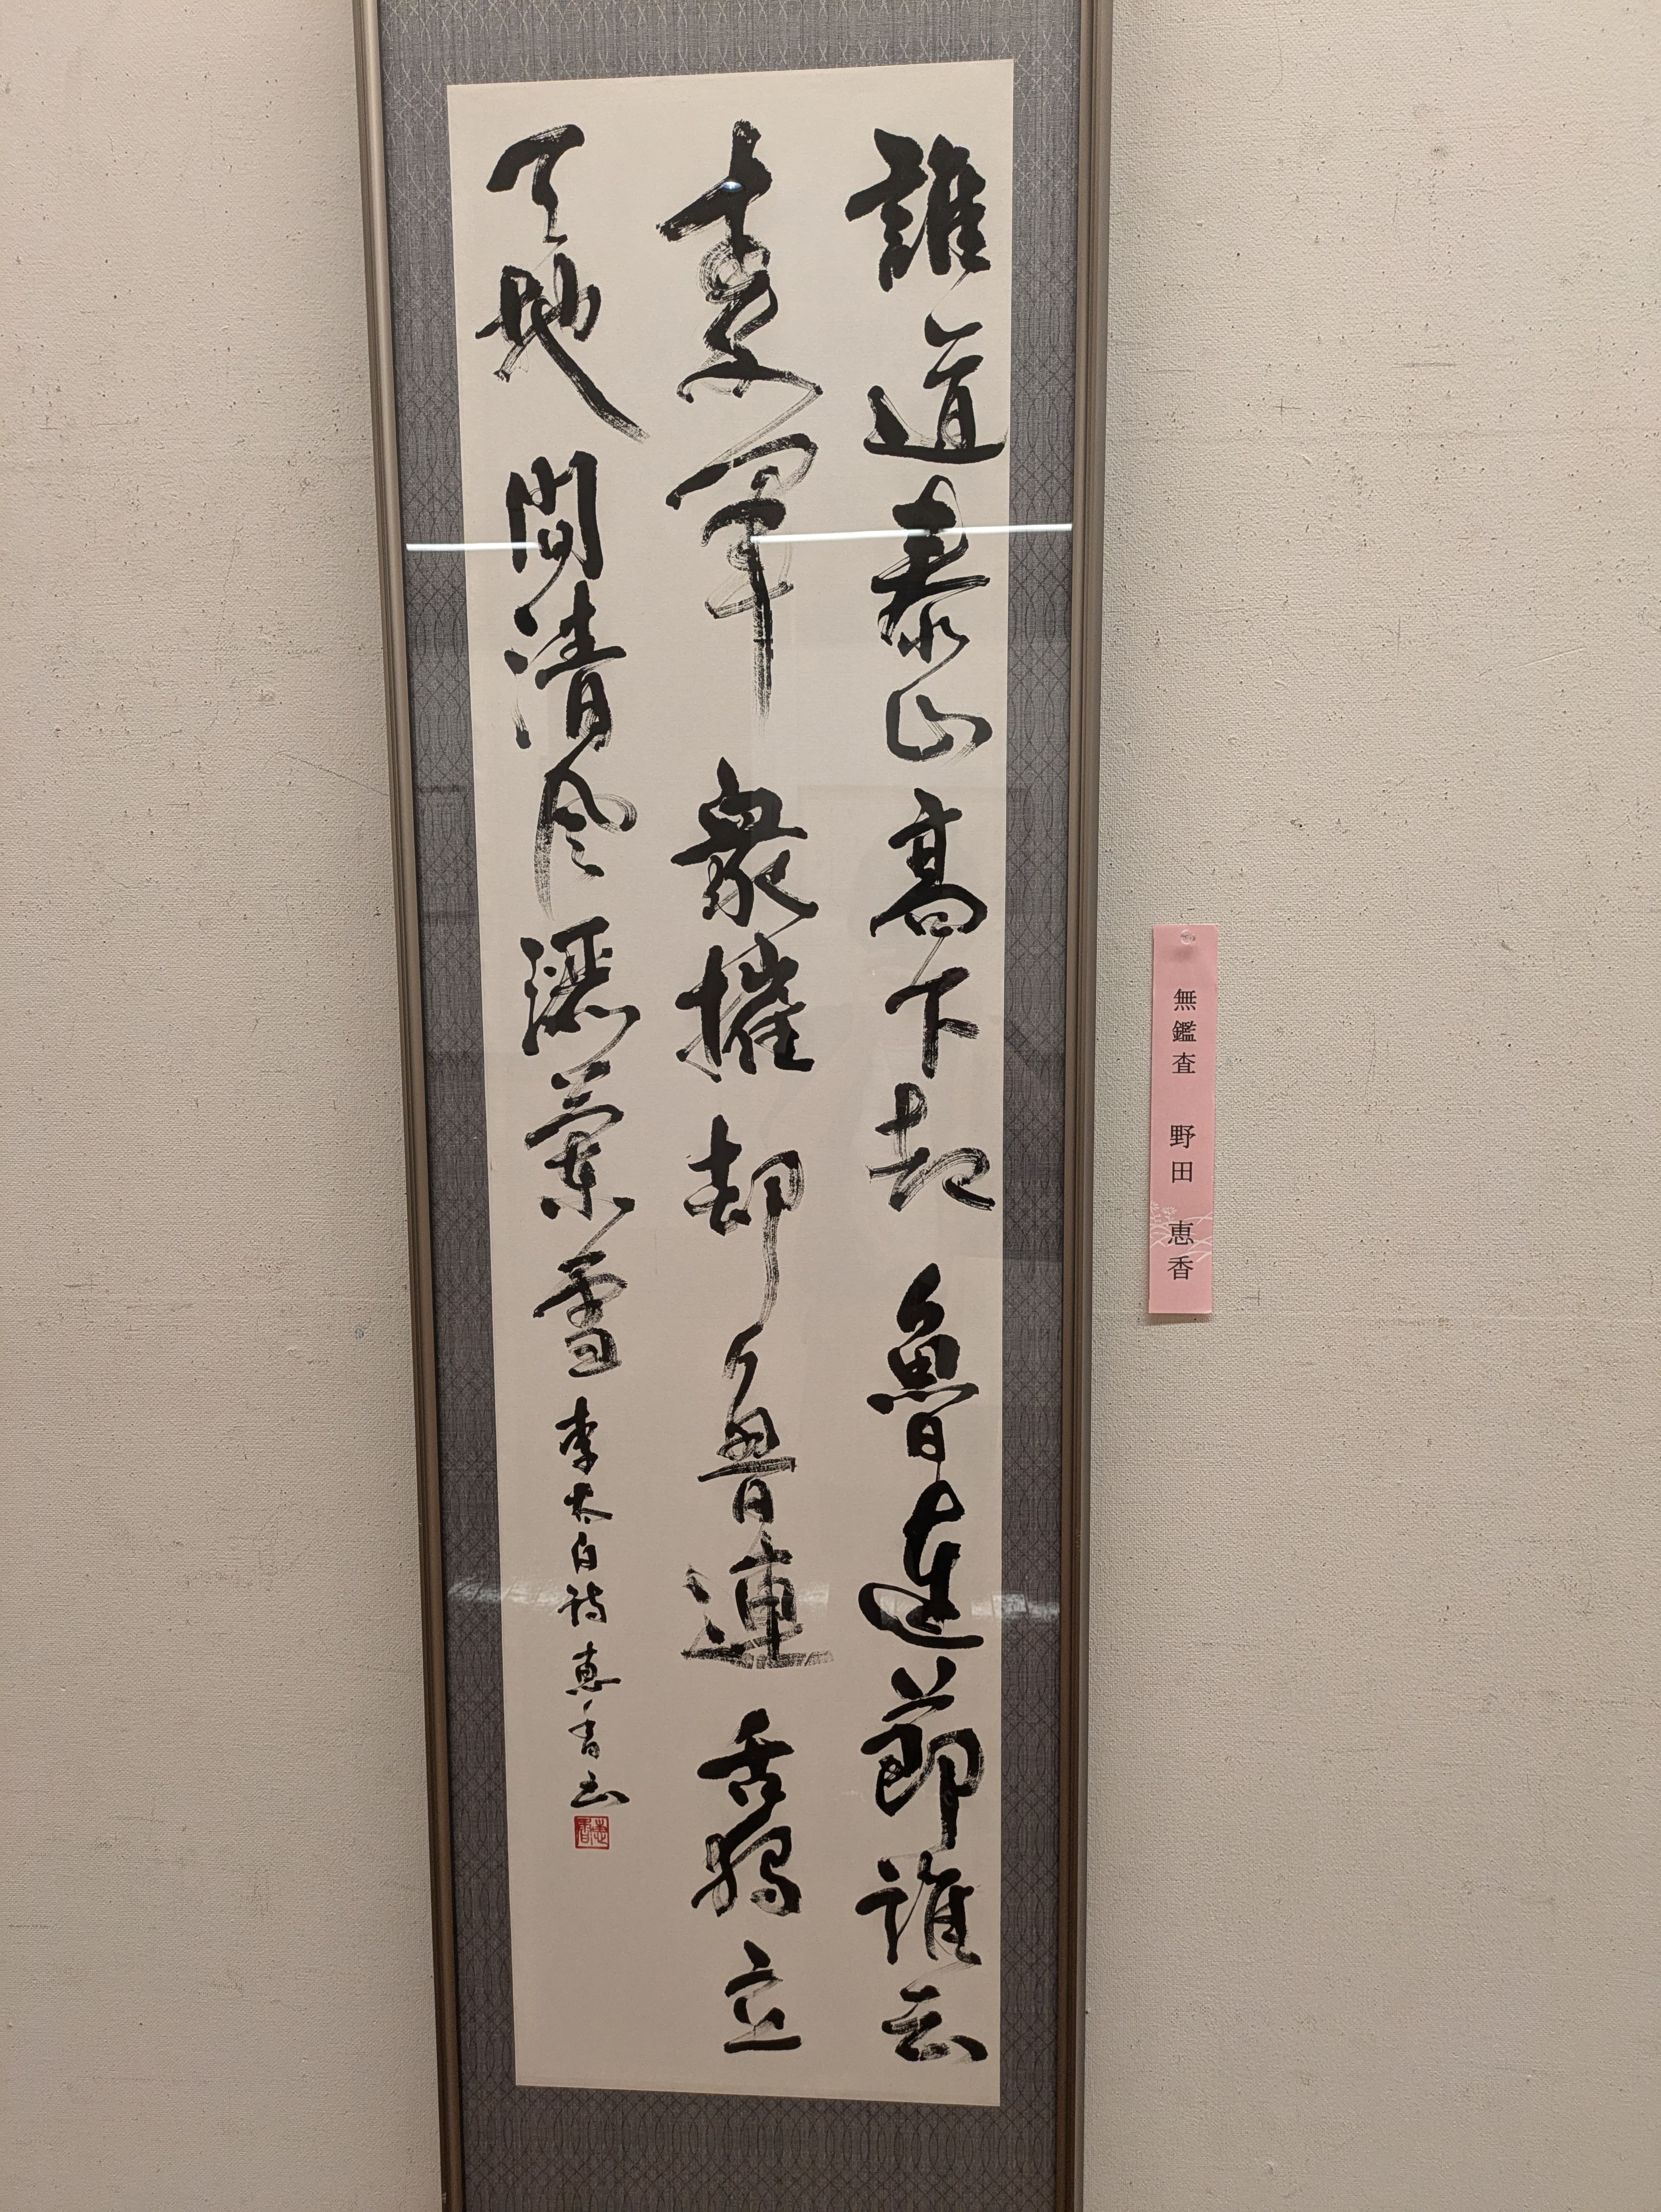 誰道泰山高下却魯連節誰云
秦軍衆摧却魯連舌獨立
天地間清風灑蘭雪 李太白詩 恵香書
恵香
無鑑査 野田 恵香